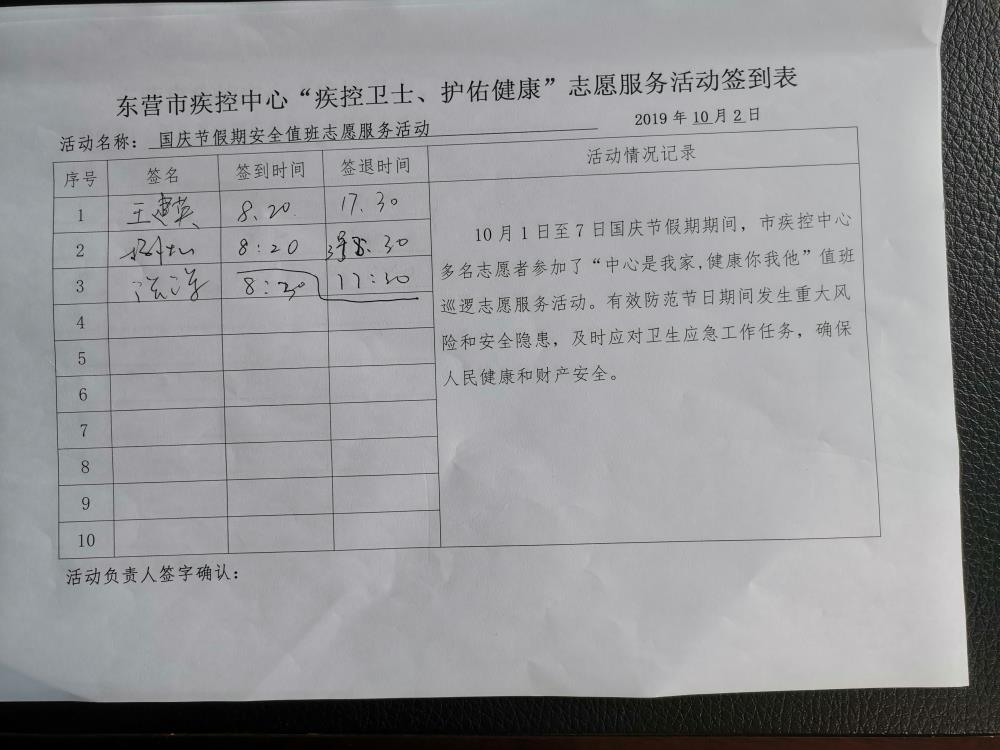 东营市疾控中心“疾控卫士、护佑健康”志愿服务活动签到表
活动名称： 国庆节假期安全值班志愿服务活动
2019 年 10 月 2 日
序号 签名 签到时间 签退时间 活动情况记录
1 王建英 8.20 17.30
2 8:20 .30
3 8:30
4
5
6
7
8
9
10
10 月 1 日至 7 日国庆节假期期间，市疾控中心
多名志愿者参加了“中心是我家,健康你我他”值班
巡逻志愿服务活动。有效防范节日期间发生重大风
险和安全隐患，及时应对卫生应急工作任务，确保
人民健康和财产安全。
活动负责人签字确认：